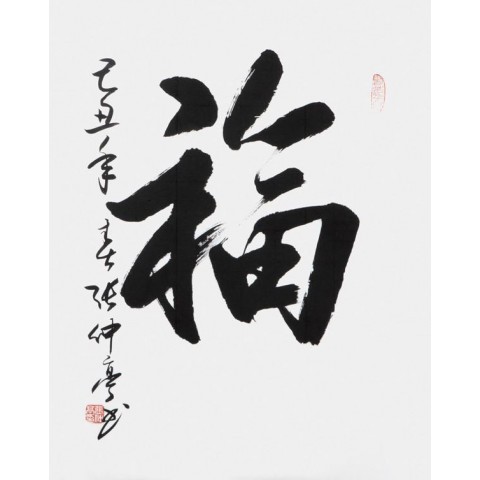 福
己丑年春张仲亭书